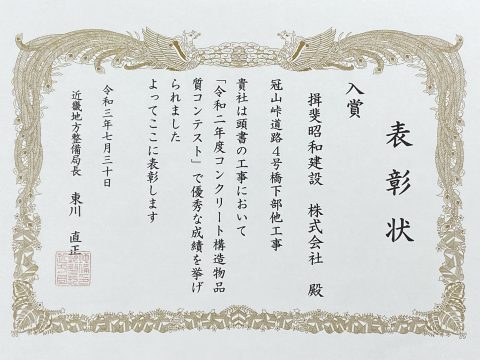 表彰状
入賞
揖斐昭和建設 株式会社 殿
冠山峠道路4号橋下部他工事
貴社は頭書の工事において
「令和二年度コンクリート構造物品
質コンテスト」で優秀な成績を挙げ
られました
よってここに表彰します
令和三年七月三十日
近畿地方整備局長 東川 直正